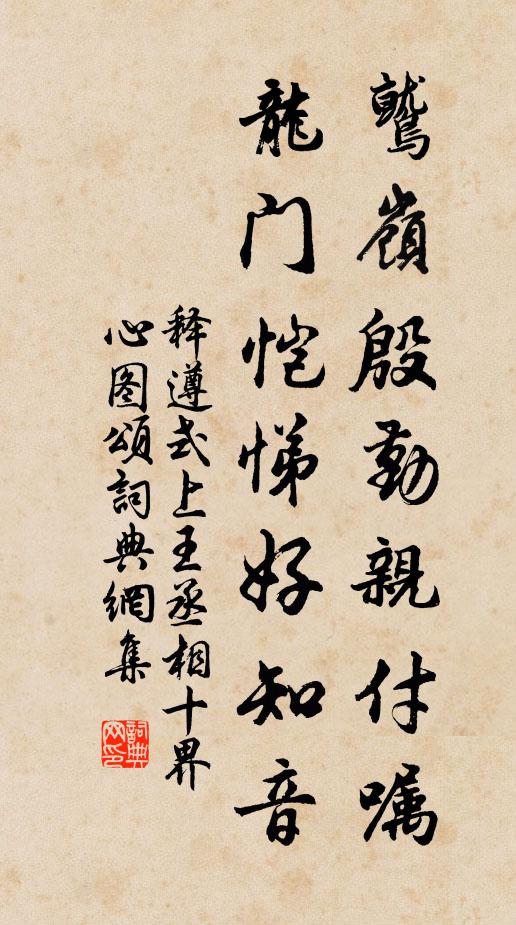 鷲嶺殷勤親付嘱
龍门愷悌好知音
释遵式上王丞相十界
心图頌詞典網集
詞典网印